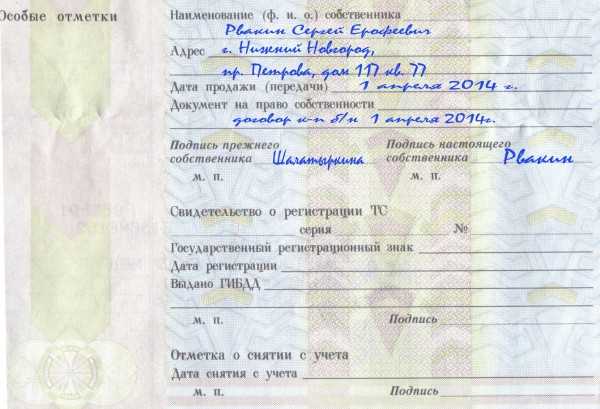 Особые отметки
Наименование (ф. и. о.) собственника
Рвакин Сергей Ерофеевич
Адрес г. Нижний Новгород,
пр. Петрова, дом 117 кв. 77
Дата продажи (передачи) 1 апреля 2014 г.
Документ на право собственности
договор к-п б/н 1 апреля 2014г.
Подпись прежнего собственника Шалатыркина
Подпись настоящего собственника Рвакин
м. п. м. п.
Свидетельство о регистрации ТС
серия №
Государственный регистрационный знак
Дата регистрации
Выдано ГИБДД
м. п. Подпись
Отметка о снятии с учета
Дата снятия с учета
м. п. Подпись